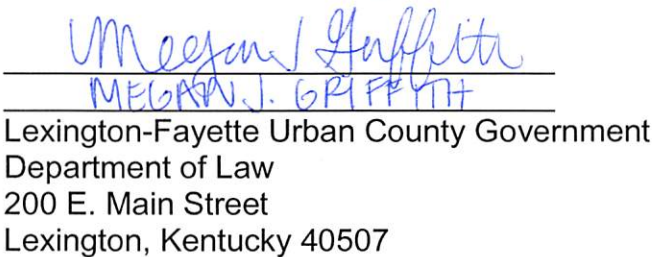 Megan J Griffith
MEGAN J. GRIFFITH
Lexington-Fayette Urban County Government
Department of Law
200 E. Main Street
Lexington, Kentucky 40507